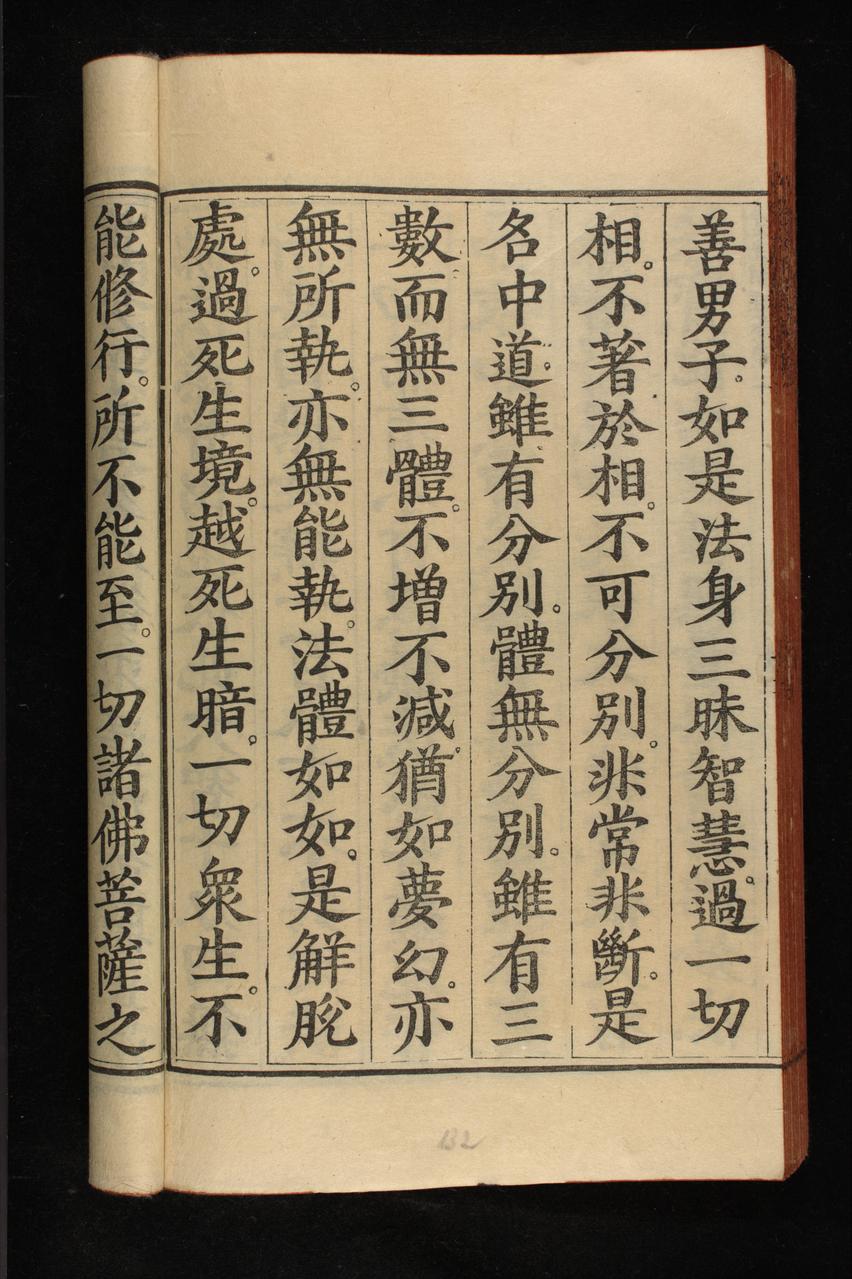 善男子。如是法身三昧智慧。過一切
相。不著於相。不可分別。非常非斷。是
名中道。雖有分別。體無分別。雖有三
數而無三體。不增不減。猶如夢幻。亦
無所執。亦無能執。法體如如。是解脫
處。過死生境。越死生暗。一切眾生。不
能修行。所不能至。一切諸佛菩薩之
132